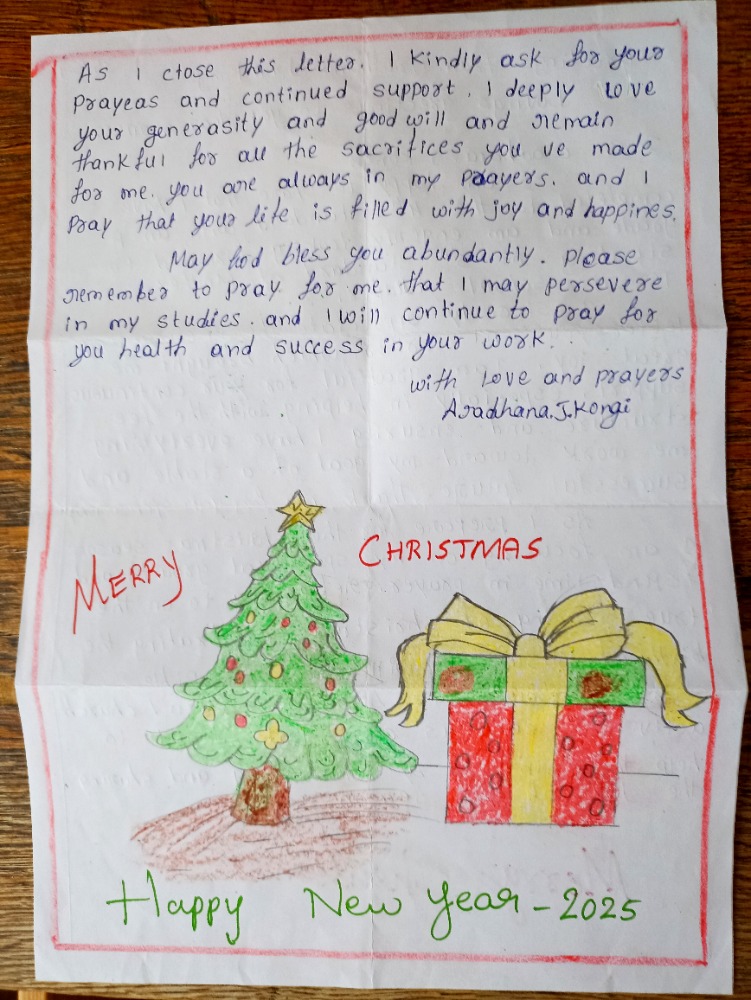 As I close this letter. I kindly ask for your
Prayeas and continued support. I deeply love
your generasity and good will and remain
thankful for all the sacrifices you ve made
for me. you are always in my Prayers. and I
Pray that your life is filled with joy and happines.
May God bless you abundantly. Please
remember to pray for me. that I may persevere
in my studies. and I will continue to pray for
you health and success in your work.
with Love and prayers
Aradhana.J.Kongi
MERRY CHRISTMAS
Happy New Year - 2025